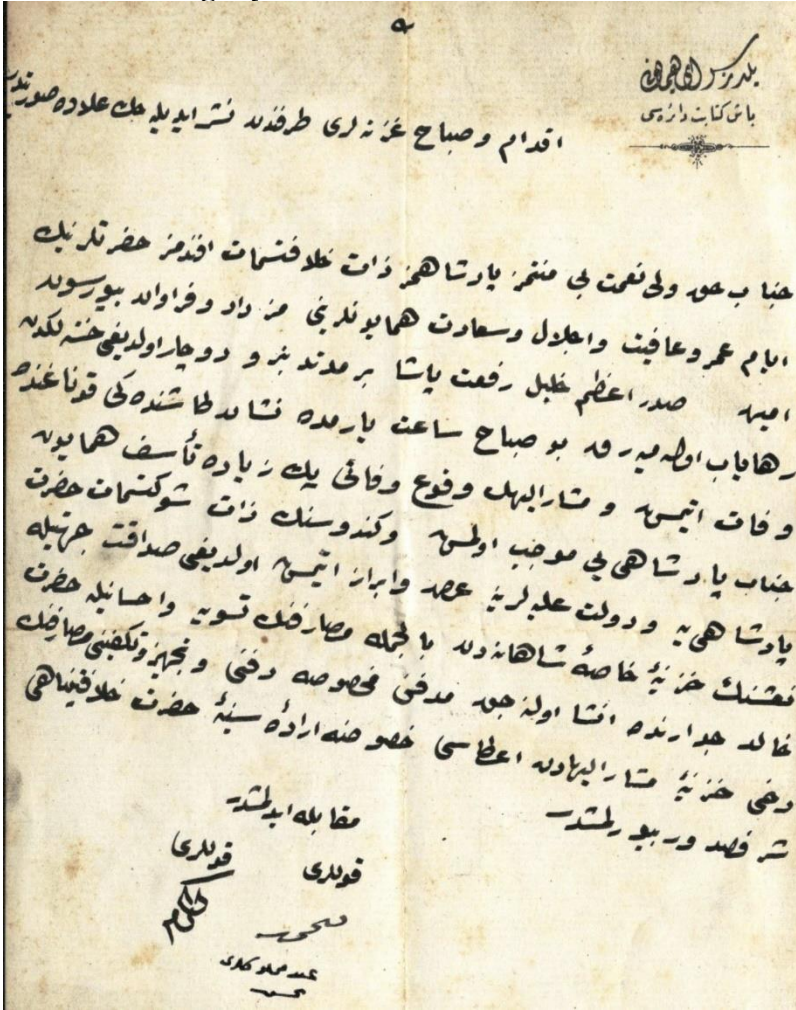 يلديز سراى همايونى
باش كتابت دائره‌سى
اقدام و صباح غزته‌لرى طرفندن نشر ايديله‌جك علاوه صورتيدر
جناب حق ولى نعمت بى منتمز پادشاهمز ذات خلافتسمات افندمز حضرتلرينك
ايام عمر و عافيت و اجلال و سعادت همايونلرينى مزداد و فراوان بيورسون
امين صدر اعظم خليل رفعت پاشا بر مدتدنبرو دوچار اولديغى خسته‌لكدن
رهاياب اوله‌ميه‌رق بو صباح ساعت يارمده نشان طاشنده‌كى قوناغنده
وفات ايتمش و مشاراليهك وقوع وفاتى پك زياده تأسف همايون
جناب پادشاهى يى موجب اولمش و كندوسنك ذات شوكتسمات حضرت
پادشاهى يه و دولت عليه‌لرينه عرض و ابراز ايتمش اولديغى صداقت جهتيله
نعشنك خزينۀ خاصۀ شاهانه‌دن بالجمله مصارفنك تسويه و احسانيله حضرت
خالد جوارنده انشا اولنه‌جق مدفن مخصوصه دفنى و تجهيز و تكفينى مصارفنك
دخى خزينۀ مشاراليهادن اعطاسى خصوصنه ارادۀ سنيۀ حضرت خلافتپناهى
شرفصدور بيورلمشدر
مقابله ايدلمشدر
قوللرى قوللرى
محمد
عبد مملوكلرى